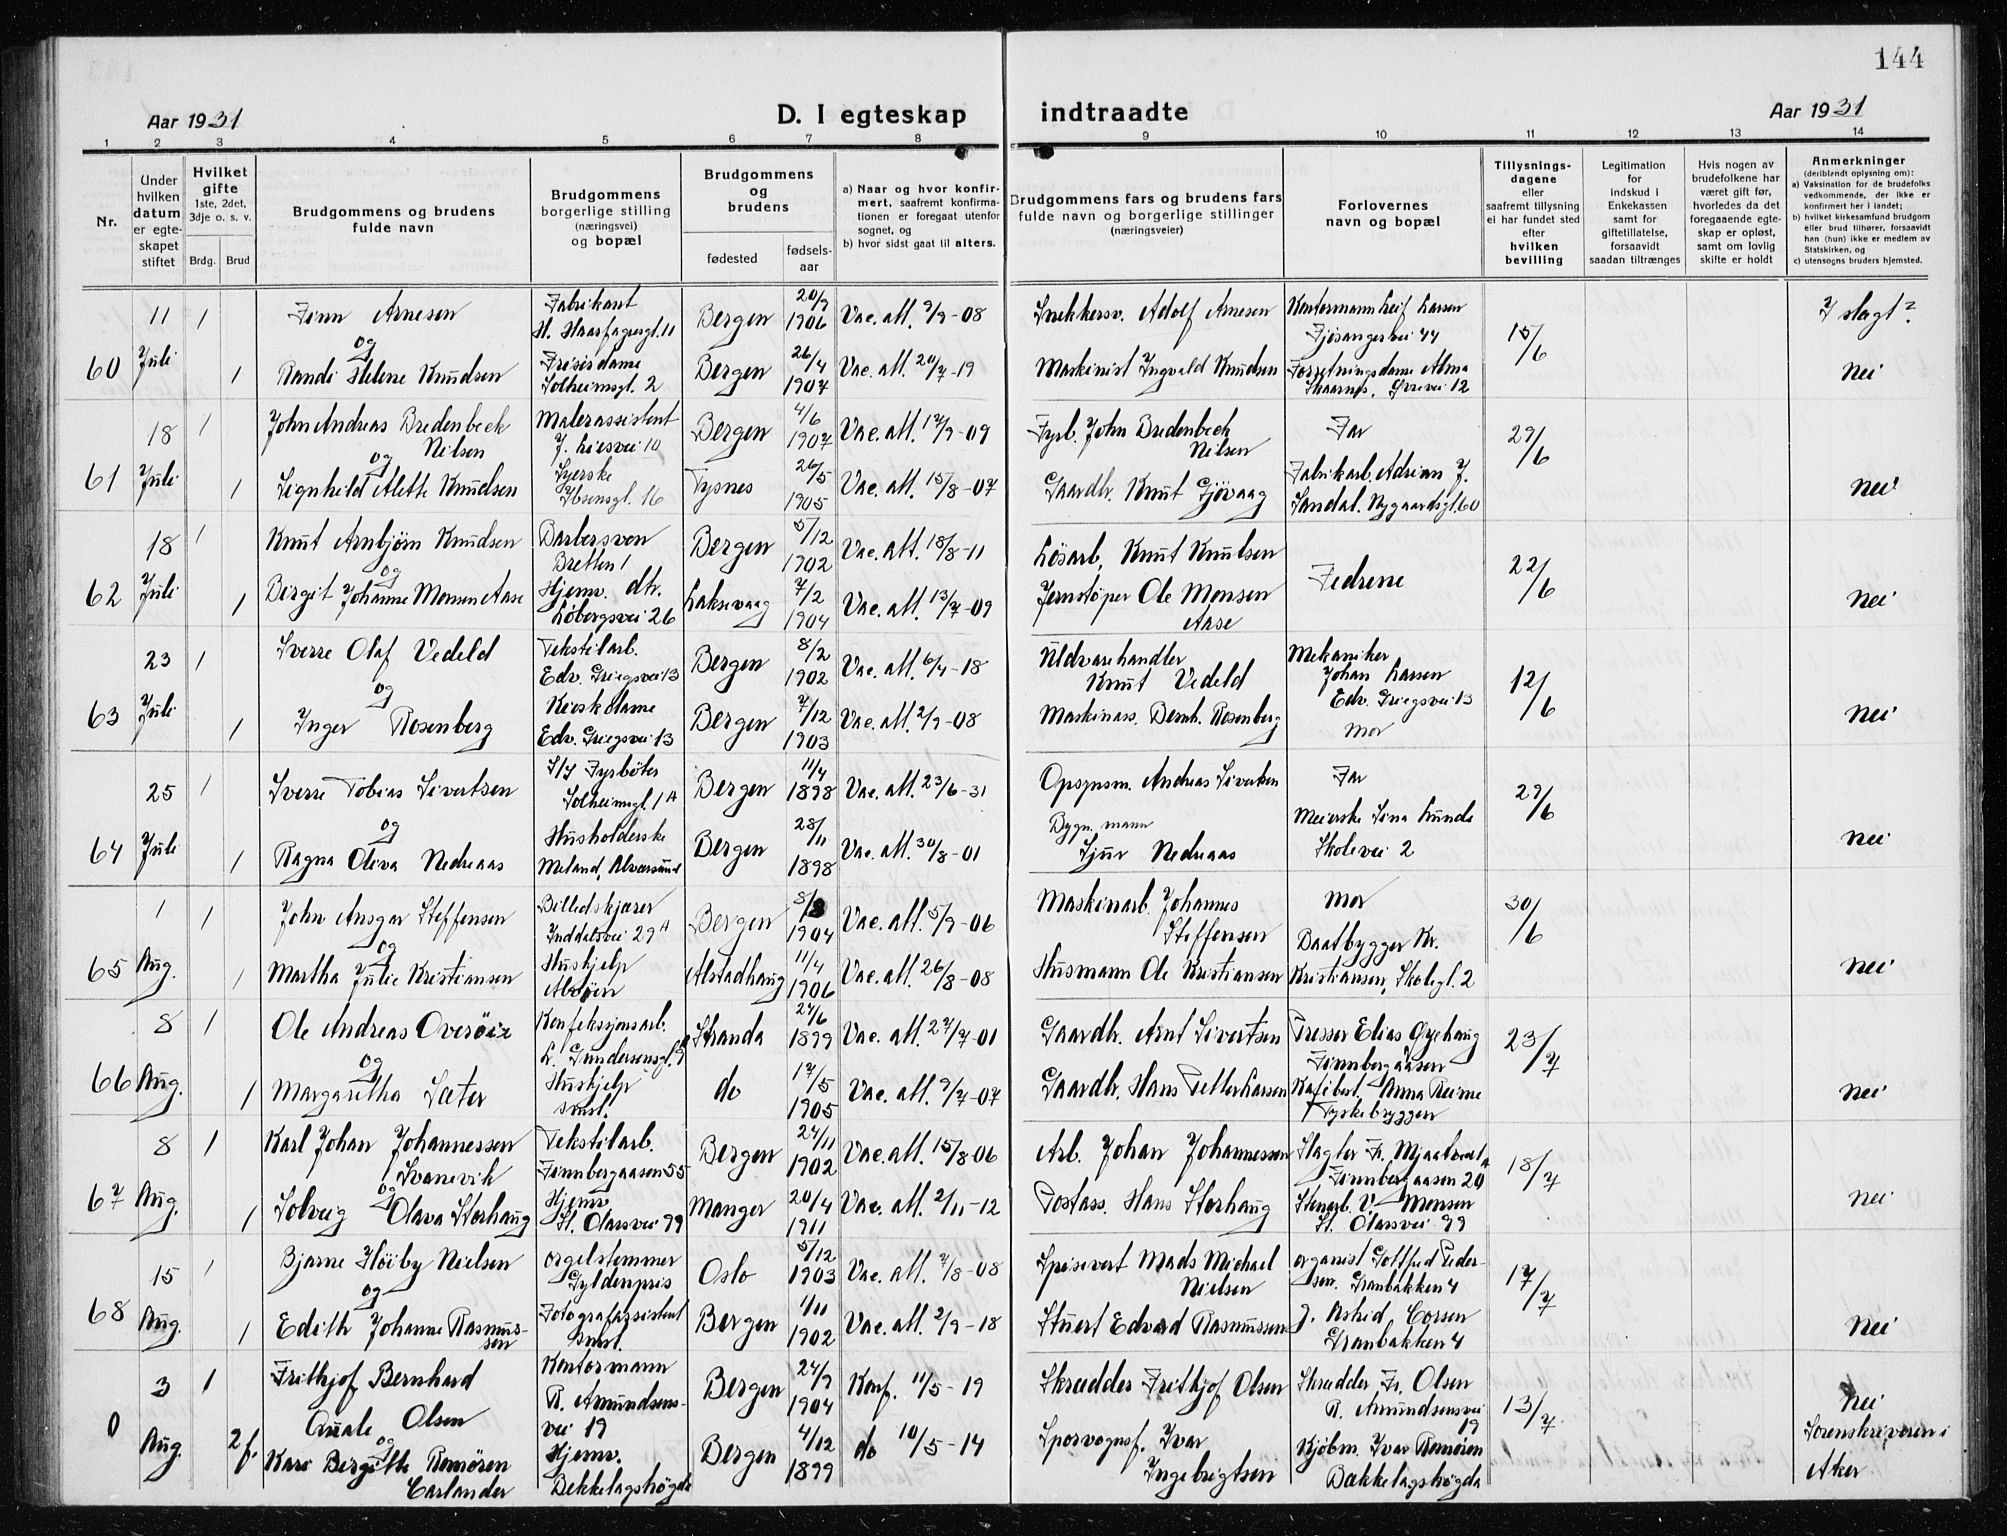 144
Aar 1931
D. I egteskap indtraadte
Aar 1931
1 2 3 4 5 6 7 8 9 10 11 12 13 14
Nr.
Under hvilken datum er egteskapet stiftet
Hvilket gifte 1ste, 2det, 3dje o. s. v.
Brdg. Brud
Brudgommens og brudens fulde navn
Brudgommens borgerlige stilling (næringsvei) og bopæl
Brudgommens og brudens
fødested
fødsels-aar
a) Naar og hvor konfirmert, saafremt konfirmationen er foregaat utenfor sognet, og
b) hvor sidst gaat til alters.
Brudgommens fars og brudens fars fulde navn og borgerlige stillinger (næringsveier)
Forlovernes navn og bopæl
Tillysningsdagene eller saafremt tillysning ei har fundet sted efter hvilken bevilling
Legitimation for indskud i Enkekassen samt for giftetillatelse, forsaavidt saadan tiltrænges
Hvis nogen av brudefolkene har været gift før, hvorledes da det foregaaende egteskap er opløst, samt om lovlig skifte er holdt
Anmerkninger (deriblendt oplysning om):
a) Vaksination for de brudefolks vedkommende, der ikke er konfirmert her i landet;
b) hvilket kirkesamfund brudgom eller brud tilhører, forsaavidt han (hun) ikke er medlem av Statskirken, og
c) utensogns bruders hjemsted.
60 11 Juli 1 Finn Arnesen Fabrikant H. Haarfagersgt. 11 Bergen 20/9 1906 Vac. att. 9/9-08 Snekkersv. Adolf Arnesen Kontormann Leif Larsen Fjøsangervei 44 15/6 I slegt?
og
1 Randi Helene Knudsen Frisørdame Solheimsgt. 2 Bergen 26/4 1907 Vac. att. 20/7-19 Maskinist Ingvald Knudsen Forretningsdame Alma Skaarnes, Øvrevei 12 Nei
61 18 Juli 1 John Andreas Bredenbeck Nilsen Malerassistent J. Liesvei 10 Bergen 4/6 1907 Vac. att. 17/9-09 Fyrb. John Bredenbeck Nilsen Far 29/6
og
1 Signhild Alette Knudsen Syerske Ibsensgt. 16 Tysnes 26/5 1905 Vac. att. 15/8-07 Gaardbr. Knut Gjøvaag Fabrikarb. Adrian J. Sandal. Nygaardsgt. 60 Nei
62 18 Juli 1 Knut Arnbjørn Knudsen Barbersven Bretten 1 Bergen 5/12 1902 Vac. att. 18/8-11 Løsarb. Knut Knutsen Fedrene 22/6
og
1 Birgit Johanne Monsen Aase Hjemv. dtr. Løbergsvei 26 Laksevaag 7/2 1904 Vac. att. 13/7-09 Jernstøper Ole Monsen Aase Nei
63 23 Juli 1 Sverre Olaf Vedeld Tekstilarb. Edv. Griegsvei 13 Bergen 8/2 1902 Vac. att. 6/4-18 Uldvarehandler Knut Vedeld Mekaniker Johan Larsen Edv. Griegsvei 13 12/6
og
1 Inger Rosenberg Kioskdame Edv. Griegsvei 13 Bergen 7/12 1903 Vac. att. 2/9-08 Maskinass. Bernh. Rosenberg Mor Nei
64 25 Juli 1 Sverre Tobias Sivertsen S/S Fyrbøter Solheimsgt. 1 A Bergen 11/4 1898 Vac. att. 23/6-31 Opsynsm. Andreas Sivertsen Far 29/6
og
1 Ragna Oliva Nedreaas Husholderske Meland, Alversund Bergen 28/11 1898 Vac. att. 30/8-01 Bygn. mann Sjur Nedreaas Meierske Sina Lunde Skolevei 2 Nei
65 1 Aug. 1 John Ansgar Steffensen Billedskjærer Inddalsvei 29 A Bergen 8/3 1904 Vac. att. 5/9-06 Maskinarb. Johannes Steffensen Mor 30/6
og
1 Martha Julie Kristiansen Huskjelp Alstadhaug 11/4 1906 Vac. att. 26/8-08 Husmann Ole Kristiansen Baatbygger Kr. Kristiansen, Skolegt. 2 Nei
66 8 Aug. 1 Ole Andreas Overøie Konfeksjonsarb. L. Gundersensgt. 9 Stranda 27/6 1899 Vac. att. 27/7-01 Gaardbr. Arnt Sivertsen Presser Elias Øyehaug Finnbergaasen 23/7
og
1 Margaretha Sæter Huskjelp smst. do 17/5 1905 Vac. att. 9/7-07 Gaardbr. Hans Petter Larsen Kafebest. Anna Reime Tyskebryggen Nei
67 8 Aug. 1 Karl Johan Johannessen Svanevik Tekstilarb. Finnbergaasen 55 Bergen 24/11 1902 Vac. att. 15/8-06 Arb. Johan Johannessen Slagter Fr. Mjaatvedt Finnbergaasen 29 18/7
og
1 Solveig Olava Storhaug Hjemv. St. Olavsvei 99 Manger 20/4 1911 Vac. att. 2/11-12 Postass. Hans Storhaug Stenarb. V. Monsen St. Olavsvei 99 Nei
68 15 Aug. 1 Bjarne Høiby Nielsen orgelstemmer Gyldenpris Oslo 5/12 1903 Vac. att. 7/8-08 Spisevert Mads Michael Nielsen organist Gottfred Pedersen. Granbakken 4 17/7
og
1 Edith Johanne Rasmussen Fotografassistent smst. Bergen 1/11 1902 Vac. att. 2/9-18 Stuert Edvard Rasmussen J. Astrid Corsen Granbakken 4 Nei
0 3 Aug. 1 Frithjof Bernhard Quale Olsen Kontormann R. Amundsensvei 19 Bergen 24/9 1904 Konf. 11/5-19 Skredder Frithjof Olsen Skredder Fr. Olsen R. Amundsensvei 19 13/7 Nei
og
2 f. Kari Bergitte Remøren Carlander Hjemv. Bekkelagshøgda Bergen 4/12 1899 do 10/5-14 Sporvognsf. Ivar Ingebrigtsen Kjøbm. Ivar Remøren Bækkelagshøgda Sorenskriveren i Aker